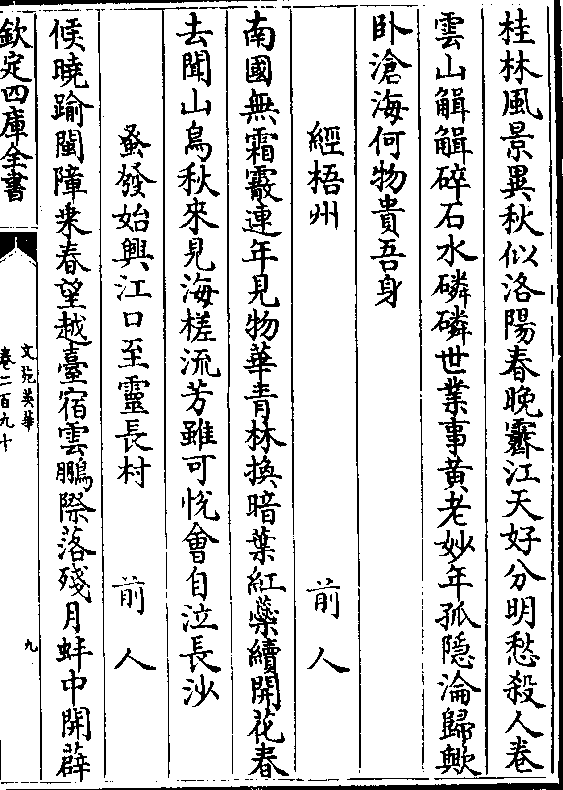 桂林風景異秋似洛陽春晚霽江天好分明愁殺人卷
雲山碎石水磷磷世業事黃老妙年孤隱淪歸歟
卧滄海何物貴吾身
經梧州 前人
南國無霜霰連年見物華青林換暗葉紅蘂續開花春
去聞山鳥秋來見海槎流芳雖可悅會自泣長沙
蚤發始興江口至靈長村 前人
候曉踰閩障乗春望越臺宿雲鵬際落殘月蚌中開薜
欽定四庫全書
文苑英華
卷二百九十
九